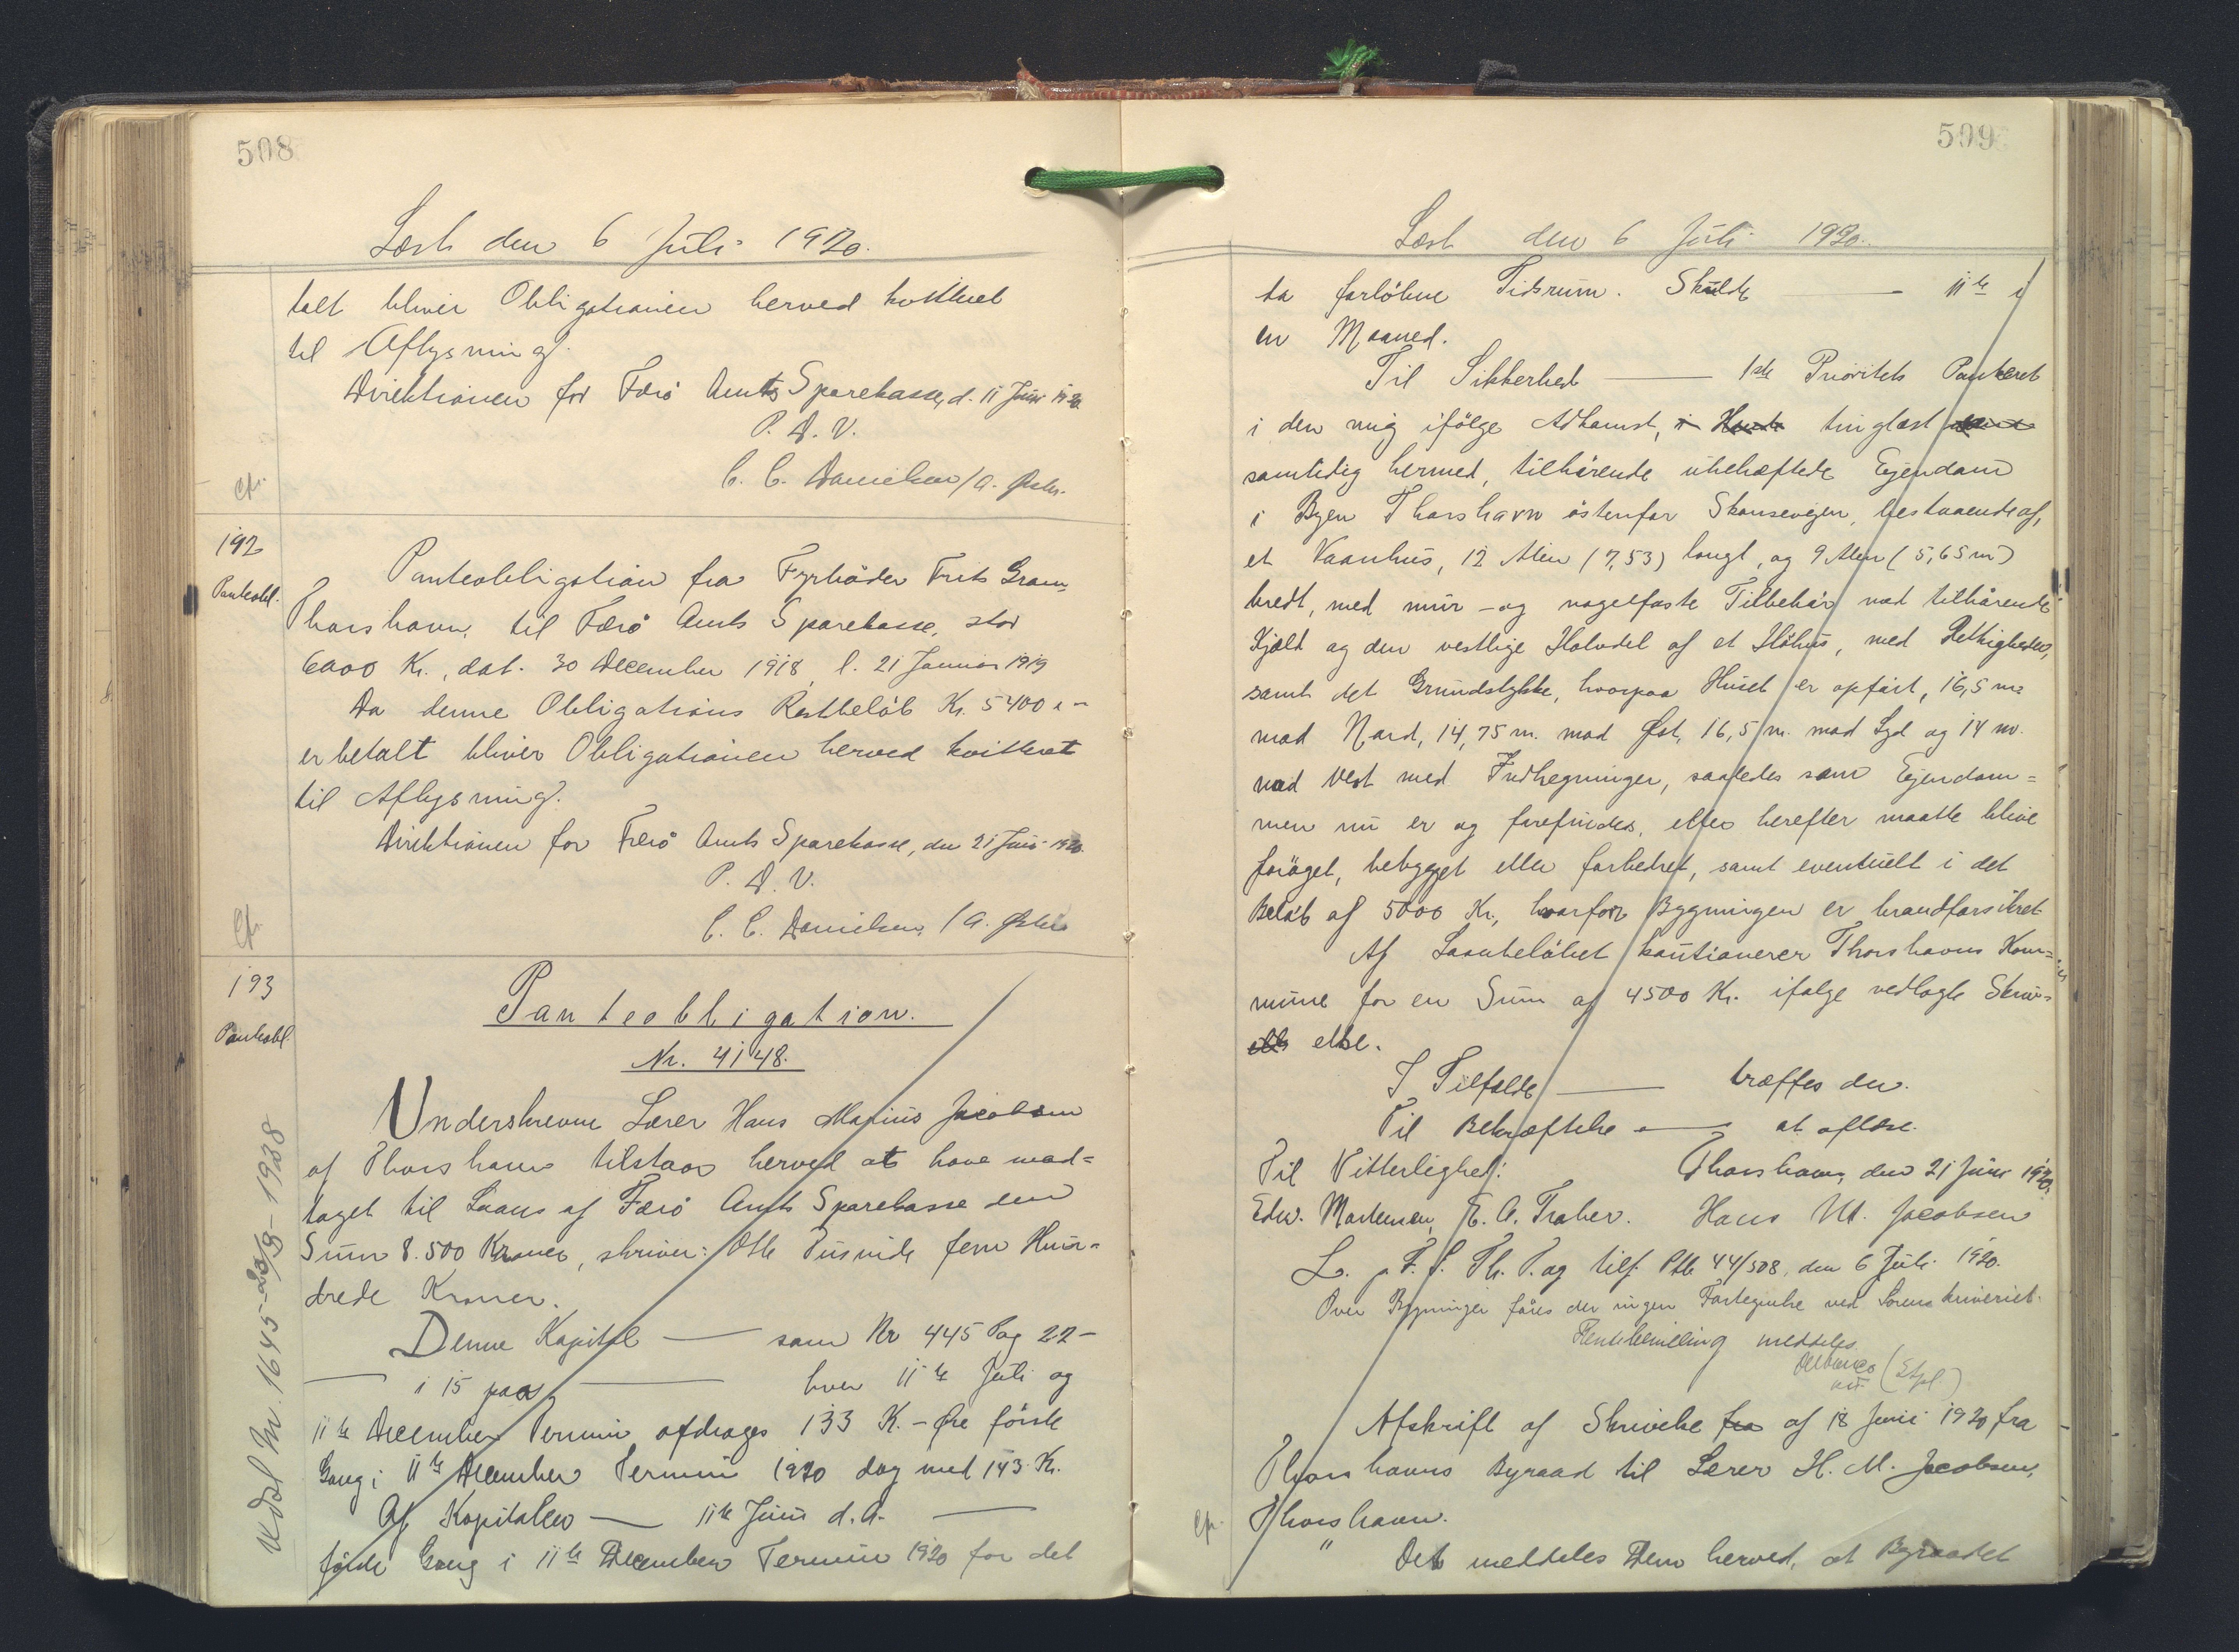 508
Læst den 6 Juli 1920.
talt bliver Obligationen herved kvitteret
til Aflysning.
Direktionen for Færø Amts Sparekasse, d. 11 Juni 1920.
P. D. V.
C. C. Danielsen / A.
cfr.
192
Panteobl.
Panteobligation fra Fyrbøder Frits Gram,
Thorshavn, til Færø Amts Sparekasse, stor
6000 Kr., dat. 30 December 1918, l. 21 Januar 1919
Da denne Obligations Restbeløb Kr. 5400 " -
er betalt bliver Obligationen herved kvitteret
til Aflysning.
Direktionen for Færø Amts Sparekasse, den 21 Juni 1920.
P. D. V.
C. C. Danielsen / A.
cfr.
193
Panteobl.
Panteobligation.
Nr. 4148.
Underskrevne Lærer Hans Marius Jacobsen
af Thorshavn tilstaar herved at have mod=
taget til Laans af Færø Amts Sparekasse den
Sum 8.500 Kroner, skriver: Otte Tusinde fem Hun=
drede Kroner.
Denne Kapital — som Nr 445 Pag 22 —
— i 15 paa — hver 11te Juli og
11te December Termin afdrages 133 K. - Øre første
Gang i 11te December Termin 1920 dog med 143 Kr.
Af Kapitalen — 11te Juni d. A. —
første Gang i 11te December Termin 1920 for det
Udsl Nr. 1645-23/9-1938
509
Læst den 6 Juli 1920.
ta forløbne Tidsrum. Skulde — 11te i
en Maaned.
Til Sikkerhed — 1ste Prioritets Panteret
i den mig ifølge Adkomst, i tinglæst
samtidig hermed, tilhørende ubehæftede Ejendom
i Byen Thorshavn østenfor Skansevejen, bestaaende af,
et Vaanhus, 12 Alen (7,53) langt, og 9 Alen (5,65 m)
bredt, med mur - og nagelfaste Tilbehør med tilhørende
Kjæld og den vestlige Halvdel af et Høhus, med Rettigheder,
samt det Grundstykke, hvorpaa Huset er opført, 16,5 m.
mod Nord, 14,75 m. mod Øst, 16,5 m. mod Syd og 14 m.
mod Vest med Indhegninger, saaledes som Ejendom=
men nu er og forefindes, eller herefter maatte blive
forøget, bebygget eller forbedret, samt eventuelt i det
Beløb af 5000 Kr., hvorfor Bygningen er brandforsikret
Af Laanbeløbet kautionerer Thorshavns Kom=
mune for en Sum af 4500 Kr. ifølge vedlagte Skriv=
else.
I Tilfælde — træffes der.
Til Bekræftelse — at aflæse.
Til Vitterlighed: Thorshavn, den 21 Juni 1920.
Edw. Mortensen, E. A. Traber. Hans M. Jacobsen
L. p. F. S. Th. P. og tilf. Ptb. 44/508, den 6 Juli 1920.
Over Bygninger føres der ingen Fortegnelse ved Sorenskriveriet.
Rentebevilling meddeles.
(Stpl)
cst.
Afskrift af Skrivelse fra af 18 Juni 1920 fra
Thorshavns Byraad til Lærer H. M. Jacobsen,
Thorshavn.
cfr.
" Det meddeles Dem herved, at Byraadet